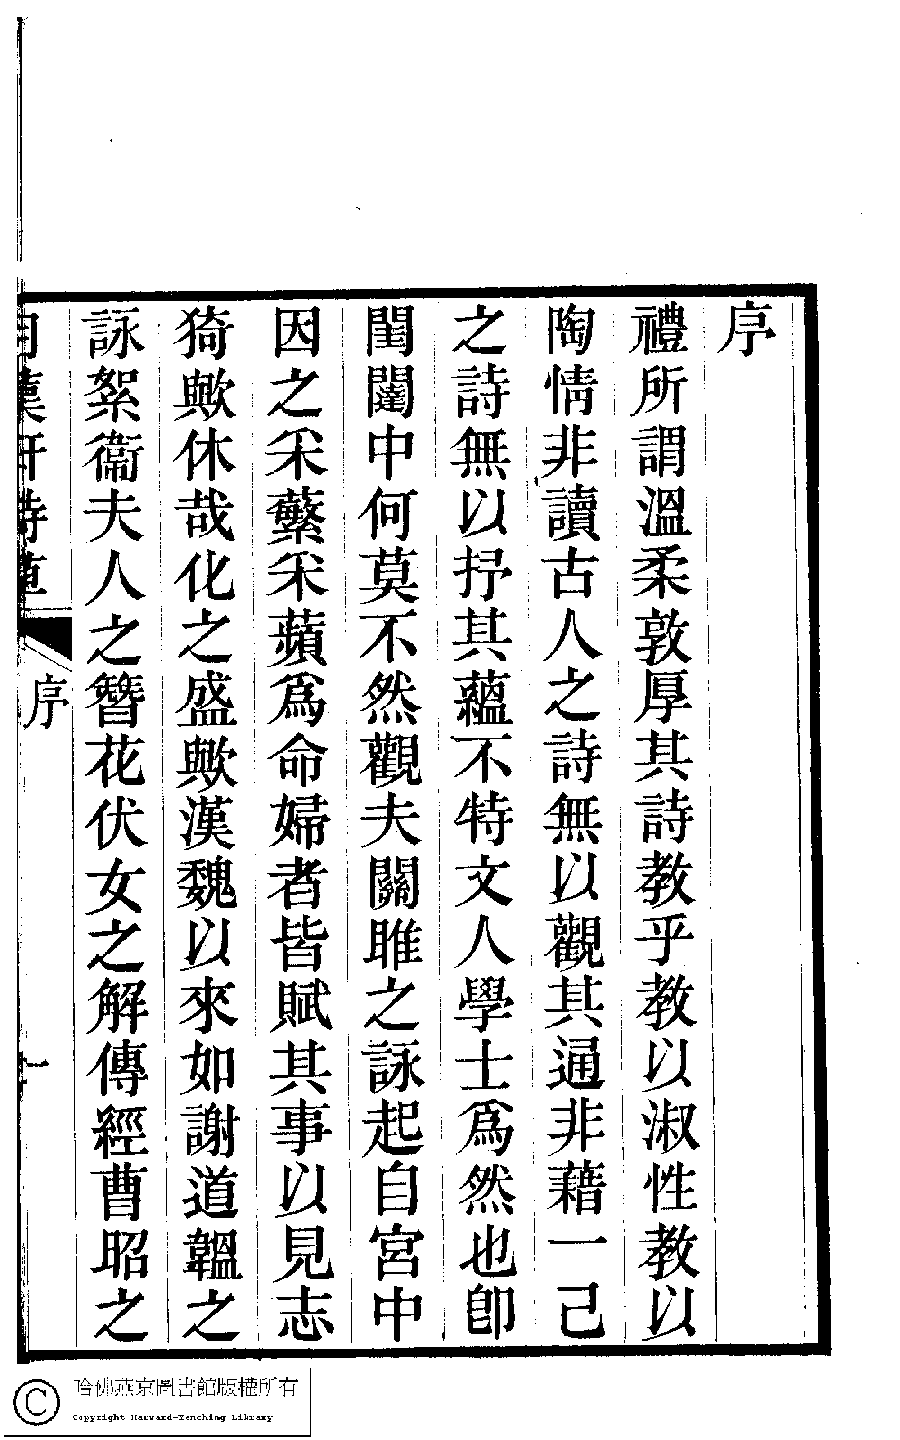 序
禮所謂溫柔敦厚其詩教乎教以淑性教以
陶情非讀古人之詩無以觀其通非藉一己
之詩無以抒其蘊不特文人學士爲然也卽
閨闥中何莫不然觀夫關雎之詠起自宮中
因之采蘩采蘋爲命婦者皆賦其事以見志
猗歟休哉化之盛歟漢魏以來如謝道韞之
詠絮衞夫人之簪花伏女之解傳經曹昭之
序 一
哈佛燕京圖書館版權所有
Copyright Harvard-Yenching Library